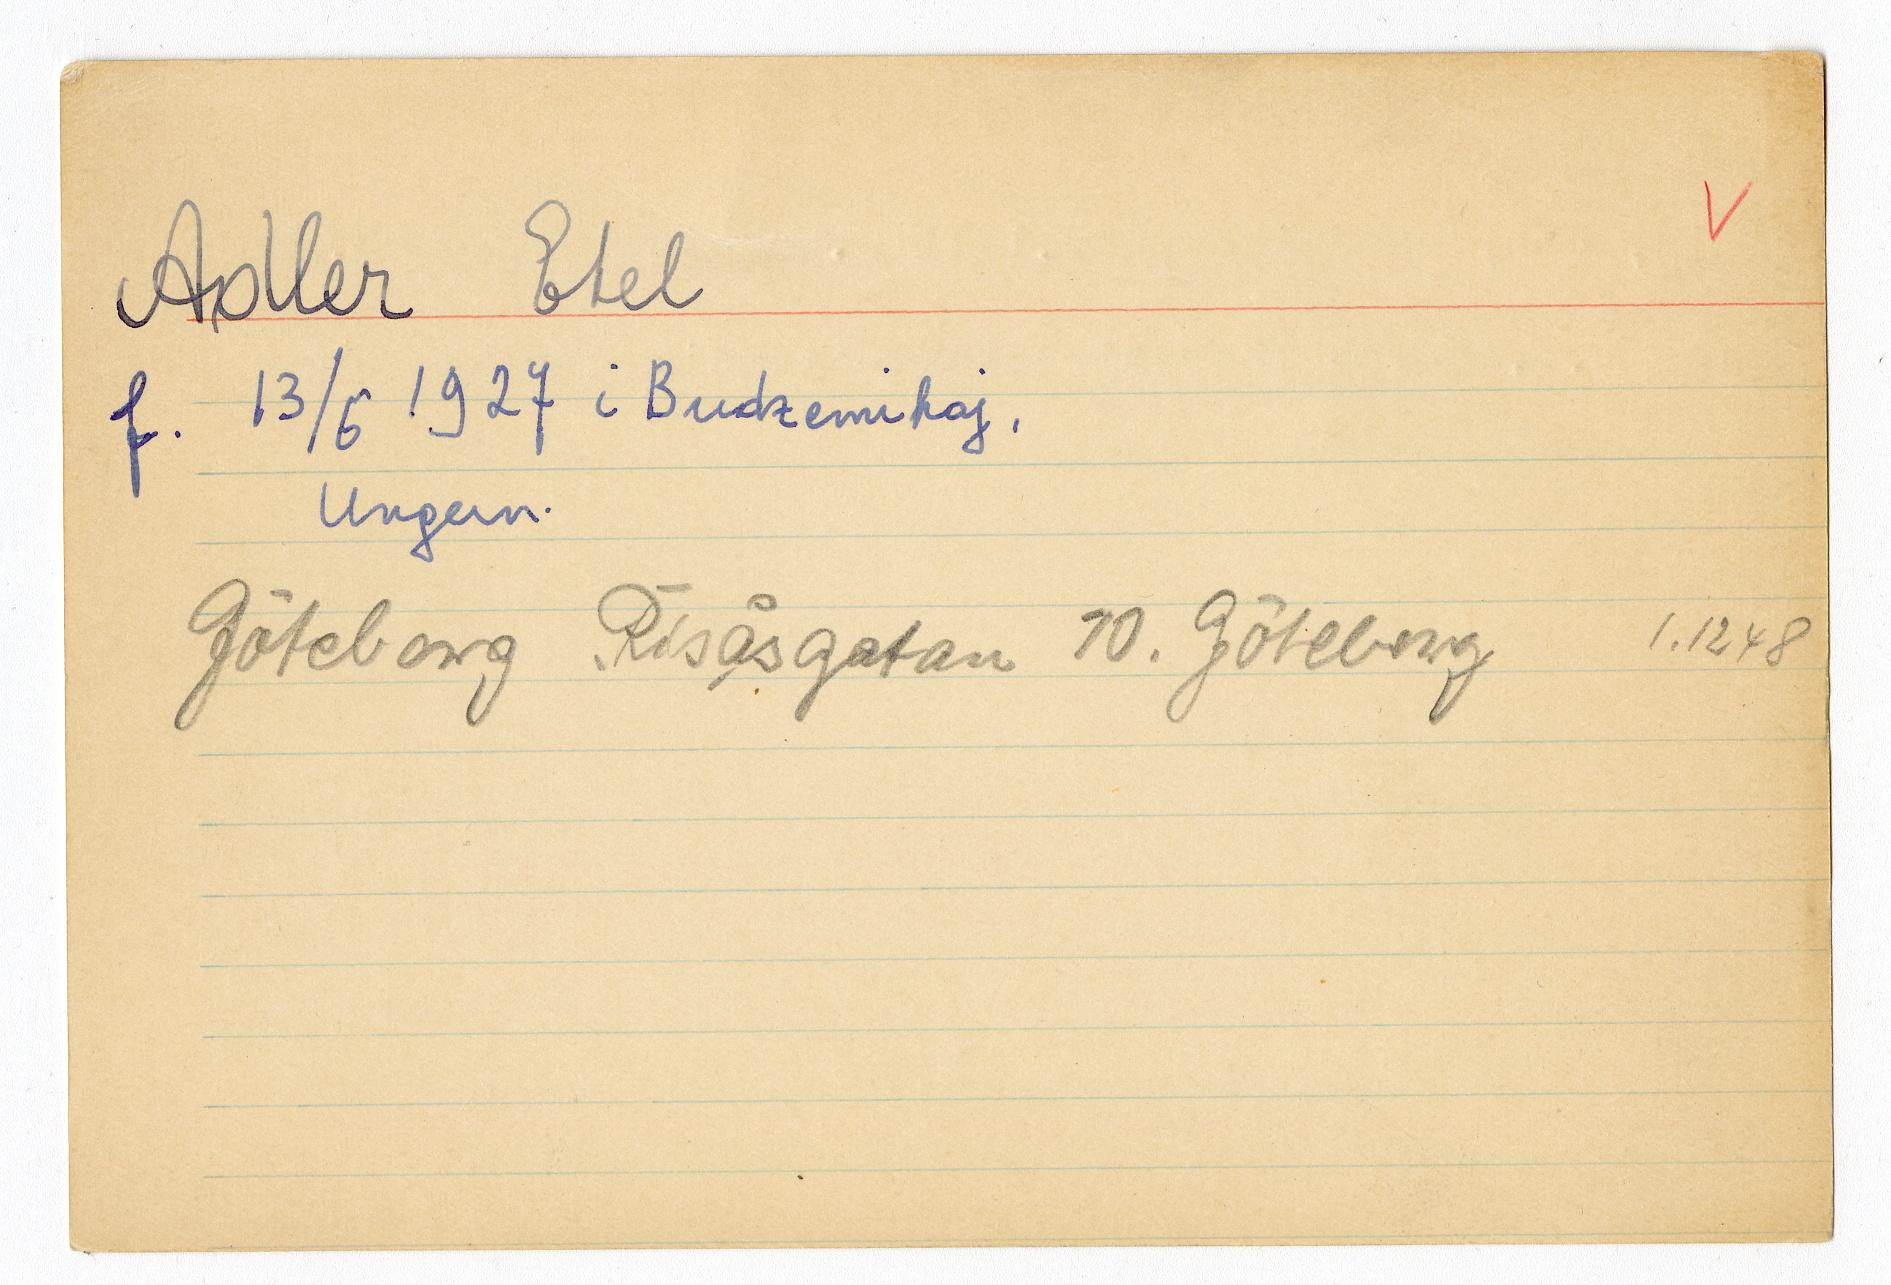 Adler Etel V
f. 13/6 1927 i Budzemihaj,
Ungern.
Göteborg Risåsgatan 10. Göteborg 1.12 48